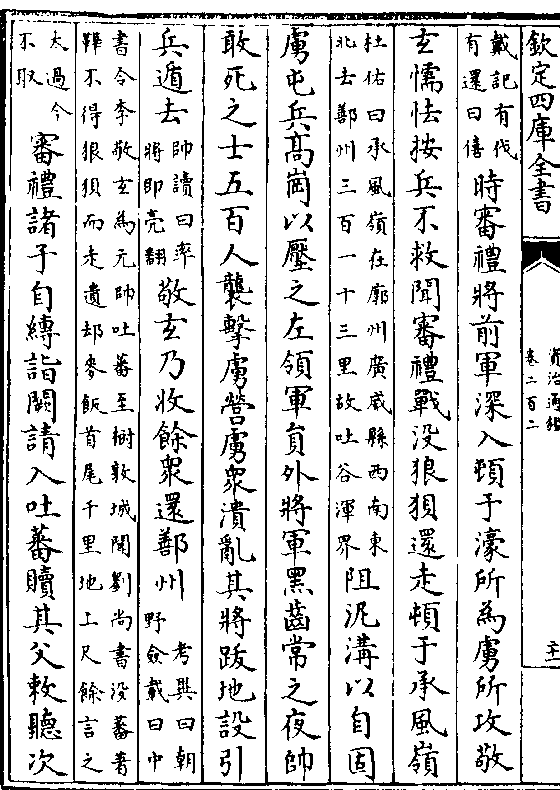 欽定四庫全書
資治通鑑
卷二百二
戴記有伐
有還曰僖
時審禮將前軍深入頓于濠所為虜所攻敬
玄懦怯按兵不救聞審禮戰没狼狽還走頓于承風嶺
杜佑曰承風嶺在廓州廣威縣西南東
北去鄯州三百一十三里故吐谷渾界
阻泥溝以自固
虜屯兵髙崗以壓之左領軍員外將軍黑齒常之夜帥
敢死之士五百人襲擊虜營虜衆潰亂其將跋地設引
兵遁去
帥讀曰率
將即亮翻
敬玄乃收餘衆還鄯州
考異曰朝
野僉載曰中
書令李敬玄為元帥吐蕃至樹敦城聞劉尚書没蕃著
鞾不得狼狽而走遺却麥飯首尾千里地上尺餘言之
太過今
不取
審禮諸子自縛詣闕請入吐蕃贖其父敕聽次